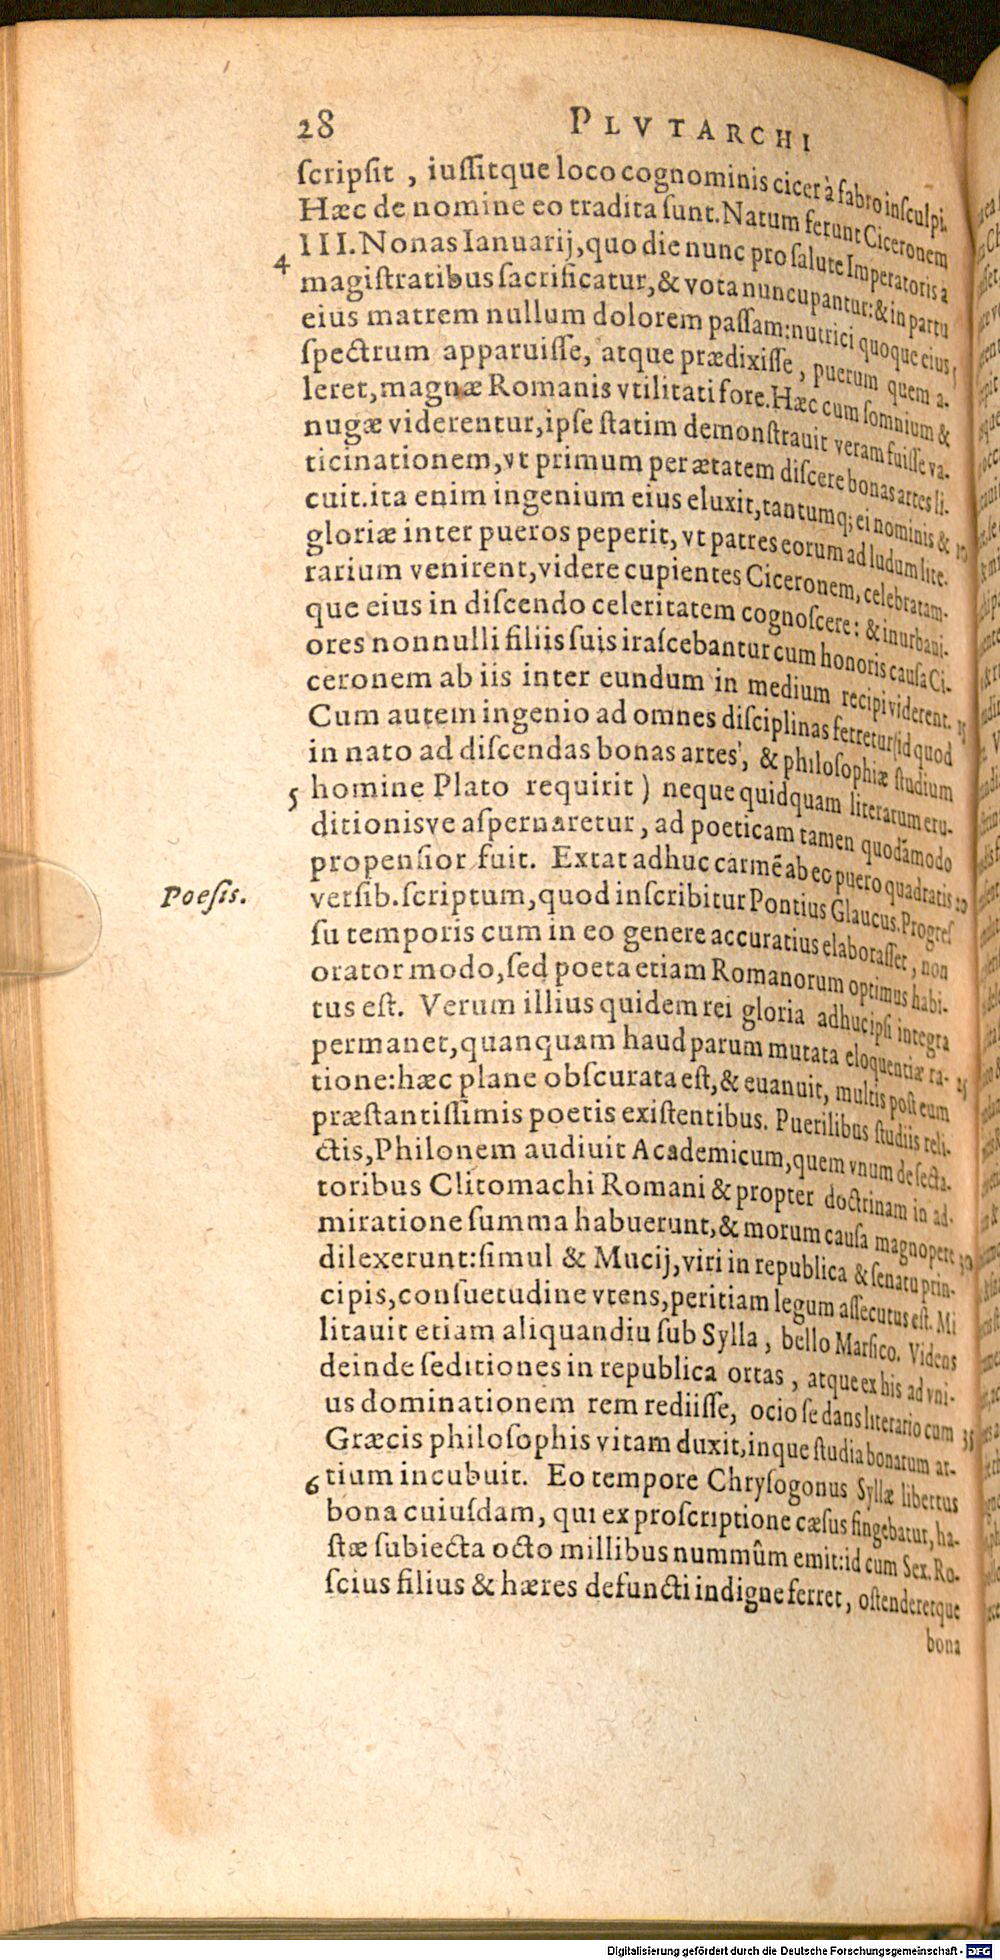 28 PLVTARCHI
ſcripſit , iuſſitque loco cognominis cicer à fabro inſculpi.
Hæc de nomine eo tradita ſunt. Natum ferunt Ciceronem
4 III. Nonas Ianuarij, quo die nunc pro ſalute Imperatoris a
magiſtratibus ſacrificatur, & vota nuncupantur: & in partu
eius matrem nullum dolorem paſſam: nutrici quoque eius 5
ſpectrum apparuiſſe, atque prædixiſſe , puerum quem a-
leret, magnæ Romanis vtilitati fore. Hæc cum ſomnium &
nugæ viderentur, ipſe ſtatim demonſtrauit veram fuiſſe va-
ticinationem, vt primum per ætatem diſcere bonas artes li-
cuit. ita enim ingenium eius eluxit, tantumq; ei nominis & 10
gloriæ inter pueros peperit, vt patres eorum ad ludum lite-
rarium venirent, videre cupientes Ciceronem, celebratam-
que eius in diſcendo celeritatem cognoſcere: & inurbani-
ores nonnulli filiis ſuis iraſcebantur cum honoris cauſa Ci-
ceronem ab iis inter eundum in medium recipi viderent. 15
Cum autem ingenio ad omnes diſciplinas ferretur (id quod
in nato ad diſcendas bonas artes, & philoſophiæ ſtudium
5 homine Plato requirit) neque quidquam literatum eru-
ditionisve aſpernaretur, ad poeticam tamen quodāmodo
propenſior fuit. Extat adhuc carmē ab eo puero quadratis 20
Poeſis.
verſib. ſcriptum, quod inſcribitur Pontius Glaucus. Progreſ
ſu temporis cum in eo genere accuratius elaboraſſet, non
orator modo, ſed poeta etiam Romanorum optimus habi-
tus eſt. Verum illius quidem rei gloria adhuc ipſi integra
permanet, quanquam haud parum mutata eloquentiæ ra- 25
tione: hæc plane obſcurata eſt, & euanuit, multis poſt eum
præſtantiſſimis poetis exiſtentibus. Puerilibus ſtudiis reli-
ctis, Philonem audiuit Academicum, quem vnum de ſecta-
toribus Clitomachi Romani & propter doctrinam in ad-
miratione ſumma habuerunt, & morum cauſa magnopere 30
dilexerunt: ſimul & Mucij, viri in republica & ſenatu prin-
cipis, conſuetudine vtens, peritiam legum aſſecutus eſt. Mi
litauit etiam aliquandiu ſub Sylla, bello Marſico. Videns
deinde ſeditiones in republica ortas , atque ex his ad vni-
us dominationem rem rediiſſe, ocio ſe dans literario cum 35
Græcis philoſophis vitam duxit, inque ſtudia bonarum ar-
6 tium incubuit. Eo tempore Chryſogonus Syllæ libertus
bona cuiuſdam, qui ex proſcriptione cæſus fingebatur, ha-
ſtæ ſubiecta octo millibus nummûm emit: id cum Sex. Ro-
ſcius filius & hæres defuncti indigne ferret, oſtenderetque
bona
Digitalisierung gefördert durch die Deutsche Forschungsgemeinschaft - DFG